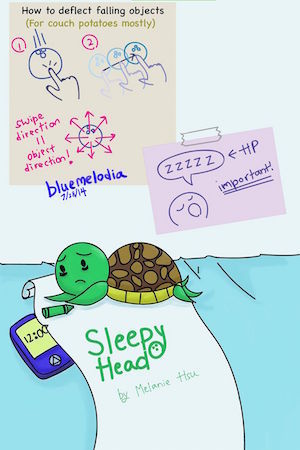 How to deflect falling objects
(For couch potatoes mostly)
1
2
swipe
direction
=
object
direction!
bluemelodia
7/28/14
ZZZZZ
←HP
important!
12:00
Sleepy
Head
by Melanie Hsu